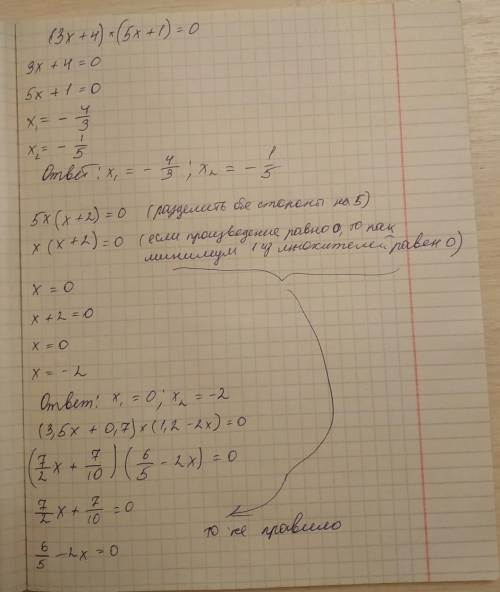 (3x + 4) × (5x + 1) = 0
3x + 4 = 0
5x + 1 = 0
x₁ = - 4/3
x₂ = - 1/5
Ответ: x₁ = - 4/3 ; x₂ = - 1/5
5x(x + 2) = 0 (разделить обе стороны на 5)
x (x + 2) = 0 (если произведение равно 0, то как
минимум 1 из множителей равен 0)
x = 0
x + 2 = 0
x = 0
x = -2
Ответ: x₁ = 0 ; x₂ = -2
(3,5x + 0,7) × (1,2 - 2x) = 0
(7/2 x + 7/10) (6/5 - 2x) = 0
7/2 x + 7/10 = 0
то же правило
6/5 - 2x = 0